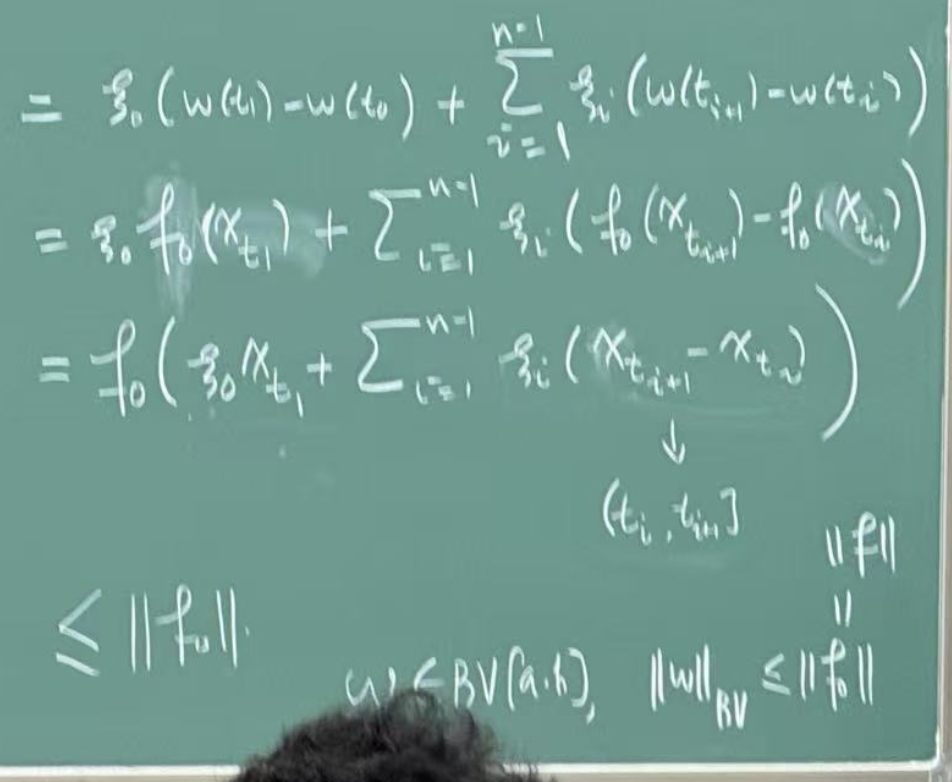 = ξ₀(w(t₁)-w(t₀) + Σ_{i=1}^{n-1} ξᵢ(w(t_{i+1})-w(tᵢ))
= ξ₀ f₀(x_{t₁}) + Σ_{i=1}^{n-1} ξᵢ(f₀(x_{t_{i+1}})-f₀(x_{tᵢ}))
= f₀(ξ₀x_{t₁} + Σ_{i=1}^{n-1} ξᵢ(x_{t_{i+1}}-x_{tᵢ}))
↓
(tᵢ, t_{i+1}]
‖f‖
=
≤ ‖f₀‖.
w ∈ BV[a.b], ‖w‖_{BV} ≤ ‖f₀‖